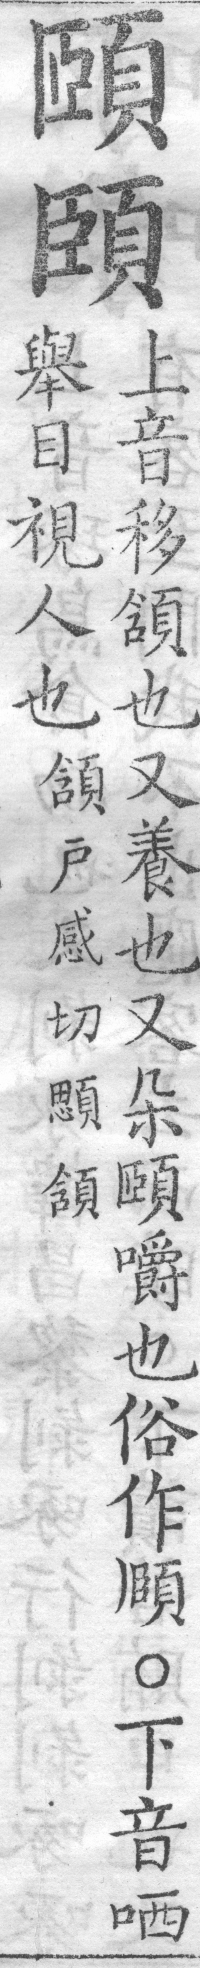 頤
頣
上音移頷也又養也又朵頤嚼也俗作頥○下音哂
舉目視人也頷戶感切顋頷